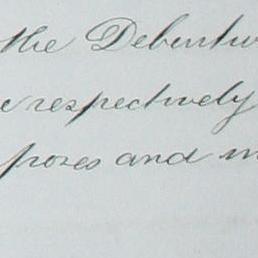 the Debentu
e respectively
poses and m